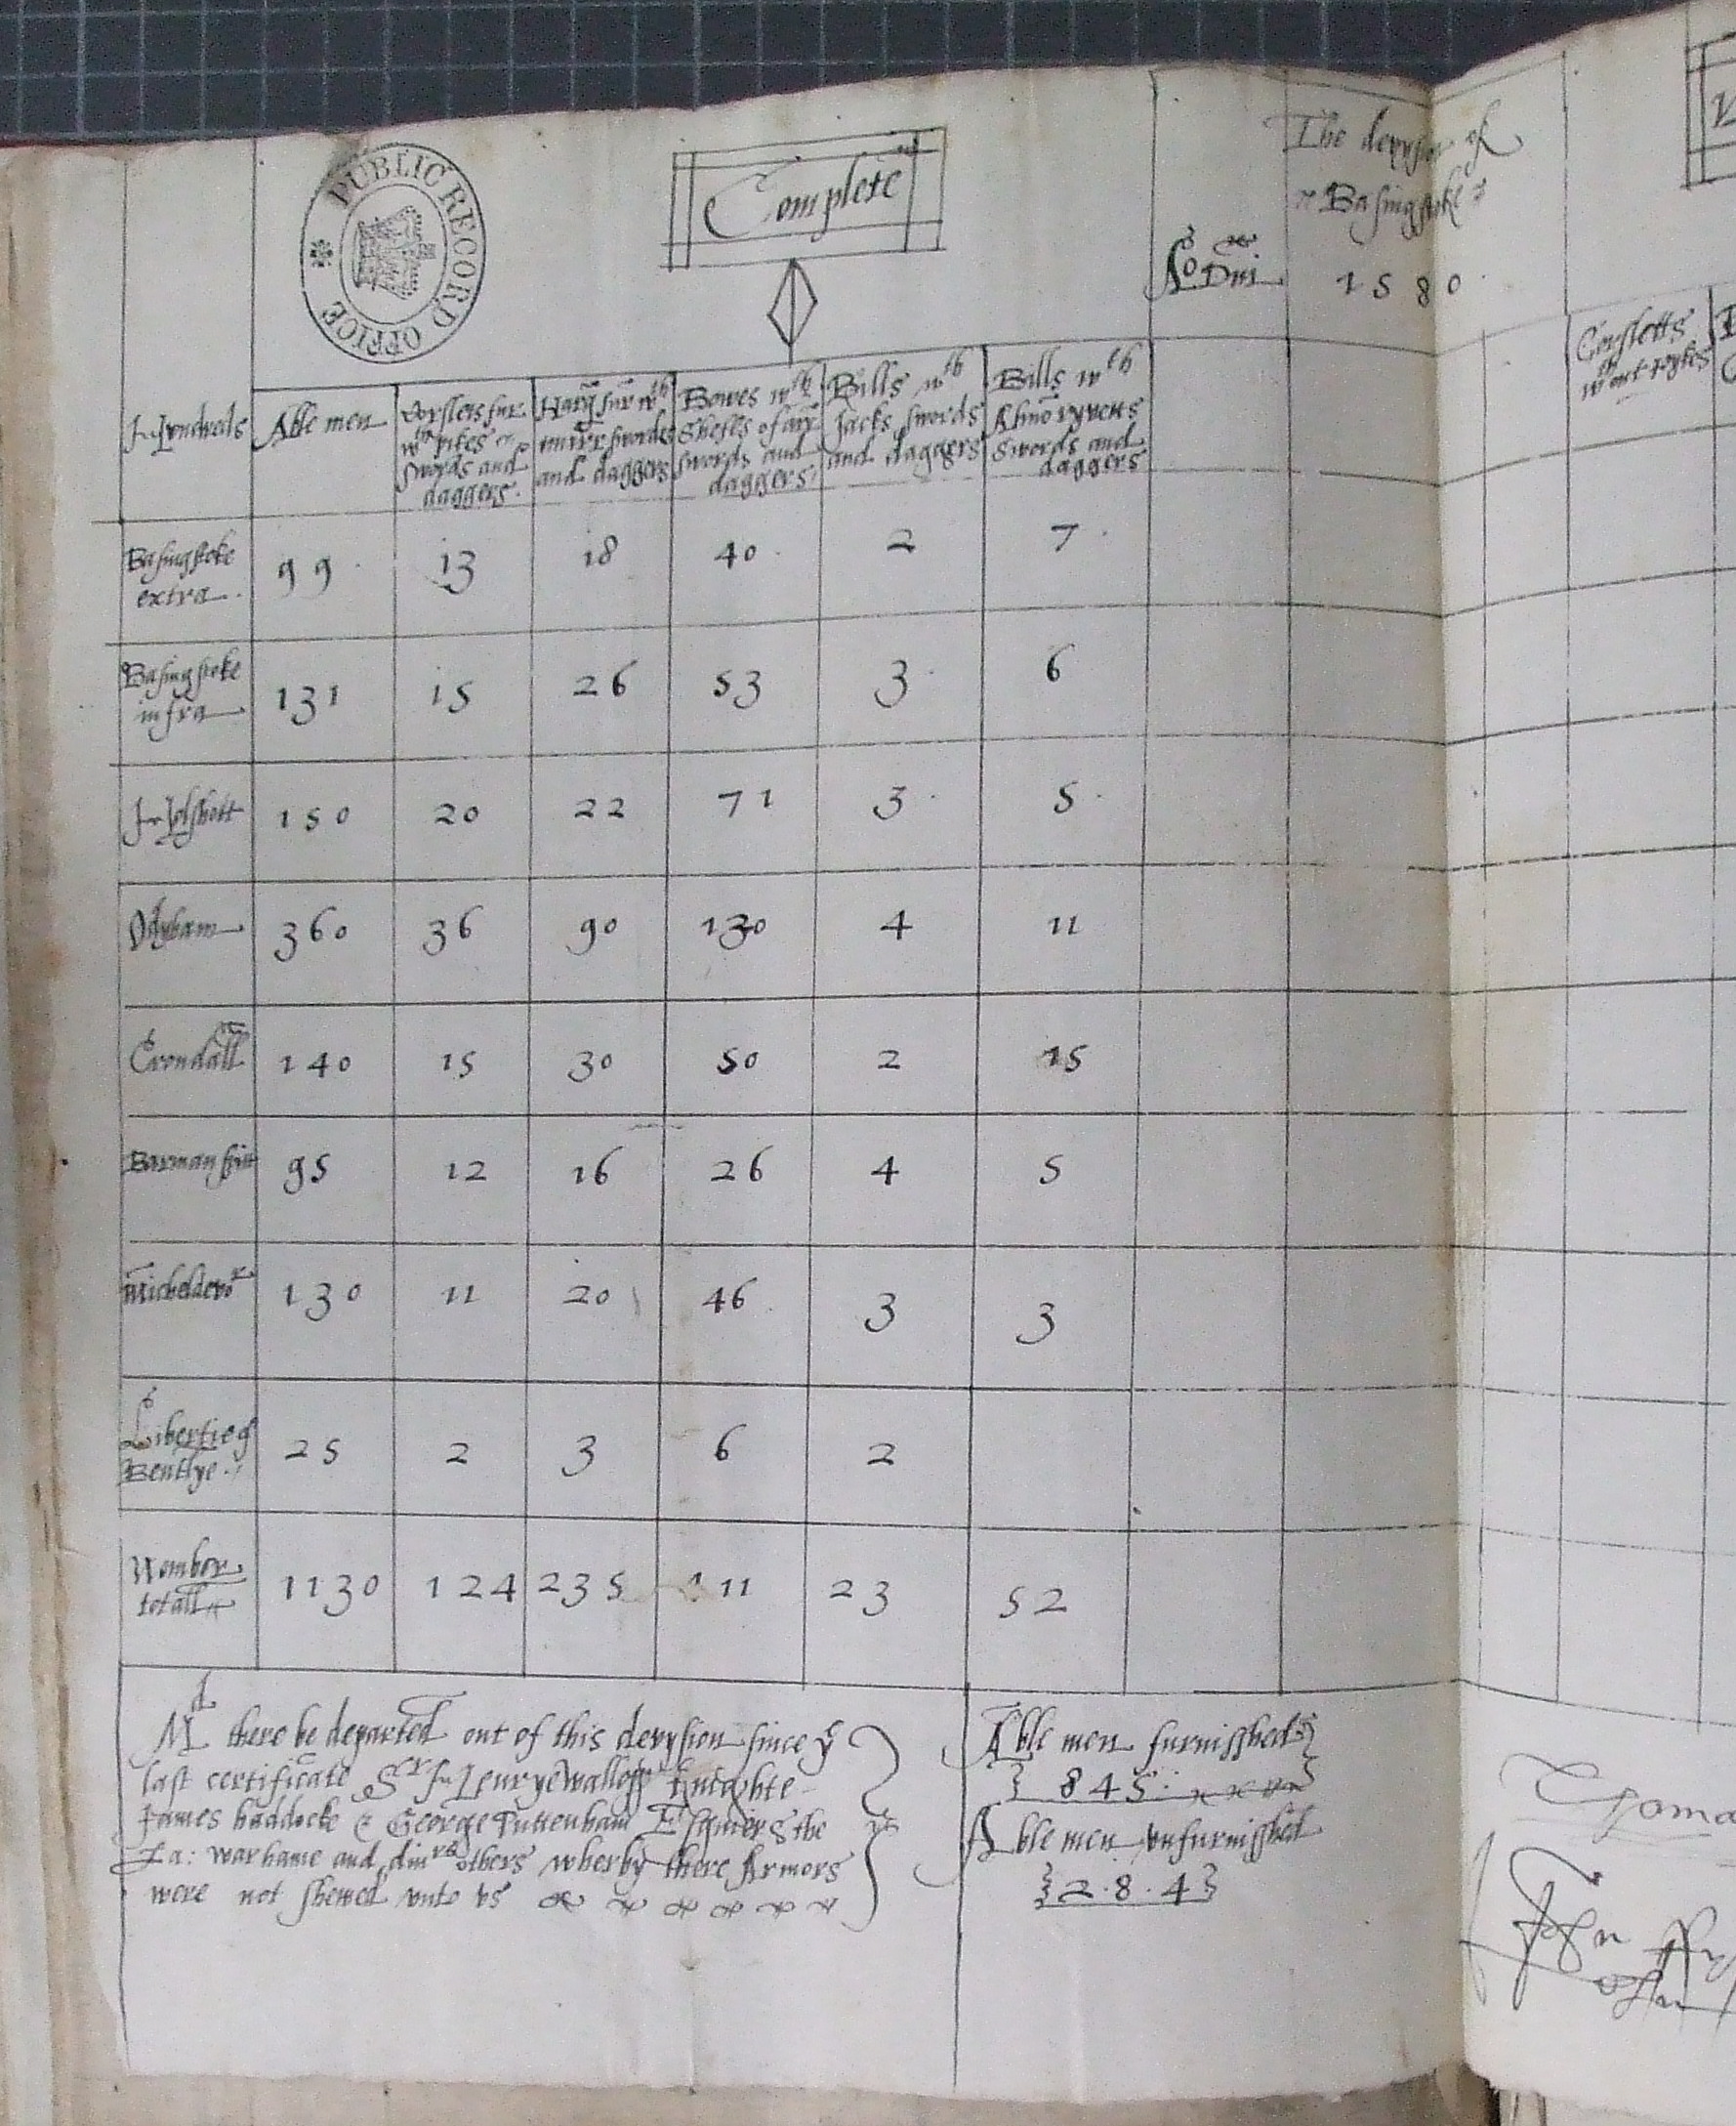 PUBLIC RECORD OFFICE
Complete
The devysion of
Basingstoke
Ao Dni 1580
Hundreds
Able men
Corslets fur
wth pikes
swords and
daggers.
Harq fur wth
swords
and daggers
Bowes wth
Shefes of arr
swords and
daggers
Bills wth
Jacks swords
and daggers
Bills wth
Almo ryvetts
Swords and
daggers
Corsletts
wthout pykes
Basingstoke
extra. 99 13 18 40 2 7
Basingstoke
infra 131 15 26 53 3 6
Holshott 150 20 22 71 3 5
Odyham 360 36 90 130 4 11
Crondall 140 15 30 50 2 15
Barmanspitt 95 12 16 26 4 5
Micheldevor 130 11 20 46 3 3
Libertie of
Bentlye 25 2 3 6 2
Nomber
totall 1130 124 235 23 52
Md there be departed out of this devysion since ye
last certificate Sr Henrye Wallopp Knighte
James haddocke & George Puttenham Esquiers the
La: warhame and divrs others wherby there Armors
were not shewed unto us
Able men furnisshed
845
Able men unfurnisshed
2.8.4